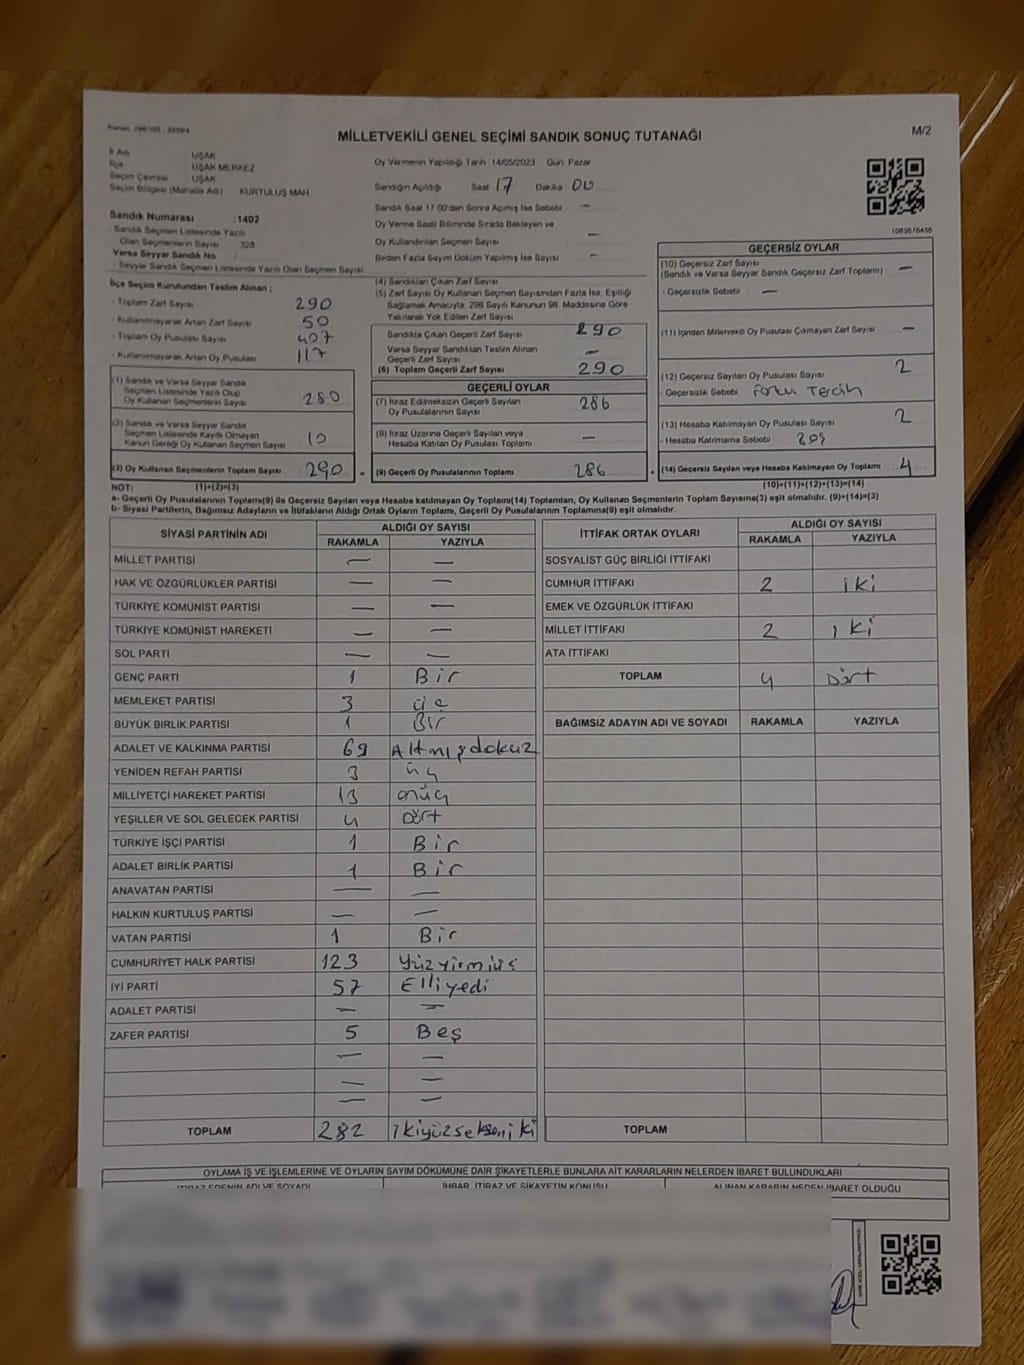 MİLLETVEKİLİ GENEL SEÇİMİ SANDIK SONUÇ TUTANAĞI
M/2
İl Adı UŞAK
İlçe UŞAK MERKEZ
Seçim Çevresi UŞAK
Seçim Bölgesi (Mahalle Adı) KURTULUŞ MAH.
Sandık Numarası : 1402
- Sandık Seçmen Listesinde Yazılı
Olan Seçmenlerin Sayısı 328
Varsa Seyyar Sandık No
- Seyyar Sandık Seçmen Listesinde Yazılı Olan Seçmen Sayısı
İlçe Seçim Kurulundan Teslim Alınan ;
- Toplam Zarf Sayısı 290
- Kullanılmayarak Artan Zarf Sayısı 50
- Toplam Oy Pusulası Sayısı 407
- Kullanılmayarak Artan Oy Pusulası 117
(1) Sandık ve Varsa Seyyar Sandık
Seçmen Listesinde Yazılı Olup
Oy Kullanan Seçmenlerin Sayısı 280
(2) Sandık ve Varsa Seyyar Sandık
Seçmen Listesinde Kayıtlı Olmayan
Kanun Gereği Oy Kullanan Seçmen Sayısı 10
(3) Oy Kullanan Seçmenlerin Toplam Sayısı 290
Oy Vermenin Yapıldığı Tarih : 14/05/2023 Gün: Pazar
Sandığın Açıldığı Saat 17 Dakika 00
Sandık Saat 17.00'den Sonra Açılmış İse Sebebi —
Oy Verme Saati Bitiminde Sırada Bekleyen ve
Oy Kullandırılan Seçmen Sayısı —
Birden Fazla Sayım Döküm Yapılmış İse Sayısı —
(4) Sandıktan Çıkan Zarf Sayısı
(5) Zarf Sayısı Oy Kullanan Seçmen Sayısından Fazla İse, Eşitliği
Sağlamak Amacıyla, 298 Sayılı Kanunun 98. Maddesine Göre
Yakılarak Yok Edilen Zarf Sayısı
Sandıkta Çıkan Geçerli Zarf Sayısı 290
Varsa Seyyar Sandıktan Teslim Alınan
Geçerli Zarf Sayısı —
(6) Toplam Geçerli Zarf Sayısı 290
GEÇERLİ OYLAR
(7) İtiraz Edilmeksizin Geçerli Sayılan
Oy Pusulalarının Sayısı 286
(8) İtiraz Üzerine Geçerli Sayılan veya
Hesaba Katılan Oy Pusulası Toplamı —
(9) Geçerli Oy Pusulalarının Toplamı 286
1083676456
GEÇERSİZ OYLAR
(10) Geçersiz Zarf Sayısı
(Sandık ve Varsa Seyyar Sandık Geçersiz Zarf Toplamı) —
- Geçersizlik Sebebi —
(11) İçinden Milletvekili Oy Pusulası Çıkmayan Zarf Sayısı —
(12) Geçersiz Sayılan Oy Pusulası Sayısı 2
- Geçersizlik Sebebi
(13) Hesaba Katılmayan Oy Pusulası Sayısı 2
- Hesaba Katılmama Sebebi
(14) Geçersiz Sayılan veya Hesaba Katılmayan Oy Toplamı 4
NOT: (1)+(2)=(3) (10)+(11)+(12)+(13)=(14)
a- Geçerli Oy Pusulalarının Toplamı(9) ile Geçersiz Sayılan veya Hesaba katılmayan Oy Toplamı(14) Toplamları, Oy Kullanan Seçmenlerin Toplam Sayısına(3) eşit olmalıdır. (9)+(14)=(3)
b- Siyasi Partilerin, Bağımsız Adayların ve İttifakların Aldığı Ortak Oyların Toplamı, Geçerli Oy Pusulalarının Toplamına(9) eşit olmalıdır.
SİYASİ PARTİNİN ADI ALDIĞI OY SAYISI
RAKAMLA YAZIYLA
MİLLET PARTİSİ — —
HAK VE ÖZGÜRLÜKLER PARTİSİ — —
TÜRKİYE KOMÜNİST PARTİSİ — —
TÜRKİYE KOMÜNİST HAREKETİ — —
SOL PARTİ — —
GENÇ PARTİ 1 Bir
MEMLEKET PARTİSİ 3 üç
BÜYÜK BİRLİK PARTİSİ 1 Bir
ADALET VE KALKINMA PARTİSİ 69 Altmışdokuz
YENİDEN REFAH PARTİSİ 3 üç
MİLLİYETÇİ HAREKET PARTİSİ 13 onüç
YEŞİLLER VE SOL GELECEK PARTİSİ 4 Dört
TÜRKİYE İŞÇİ PARTİSİ 1 Bir
ADALET BİRLİK PARTİSİ 1 Bir
ANAVATAN PARTİSİ — —
HALKIN KURTULUŞ PARTİSİ — —
VATAN PARTİSİ 1 Bir
CUMHURİYET HALK PARTİSİ 123 Yüzyirmiüç
İYİ PARTİ 57 Elliyedi
ADALET PARTİSİ — —
ZAFER PARTİSİ 5 Beş
— —
— —
— —
TOPLAM 282 ikiyüzsekseniki
İTTİFAK ORTAK OYLARI ALDIĞI OY SAYISI
RAKAMLA YAZIYLA
SOSYALİST GÜÇ BİRLİĞİ İTTİFAKI
CUMHUR İTTİFAKI 2 iki
EMEK VE ÖZGÜRLÜK İTTİFAKI
MİLLET İTTİFAKI 2 iki
ATA İTTİFAKI
TOPLAM 4 Dört
BAĞIMSIZ ADAYIN ADI VE SOYADI RAKAMLA YAZIYLA
TOPLAM
OYLAMA İŞ VE İŞLEMLERİNE VE OYLARIN SAYIM DÖKÜMÜNE DAİR ŞİKAYETLERLE BUNLARA AİT KARARLARIN NELERDEN İBARET BULUNDUKLARI
İTİRAZ EDENİN ADI VE SOYADI İHBAR, İTİRAZ VE ŞİKAYETİN KONUSU ALINAN KARARIN NEDEN İBARET OLDUĞU